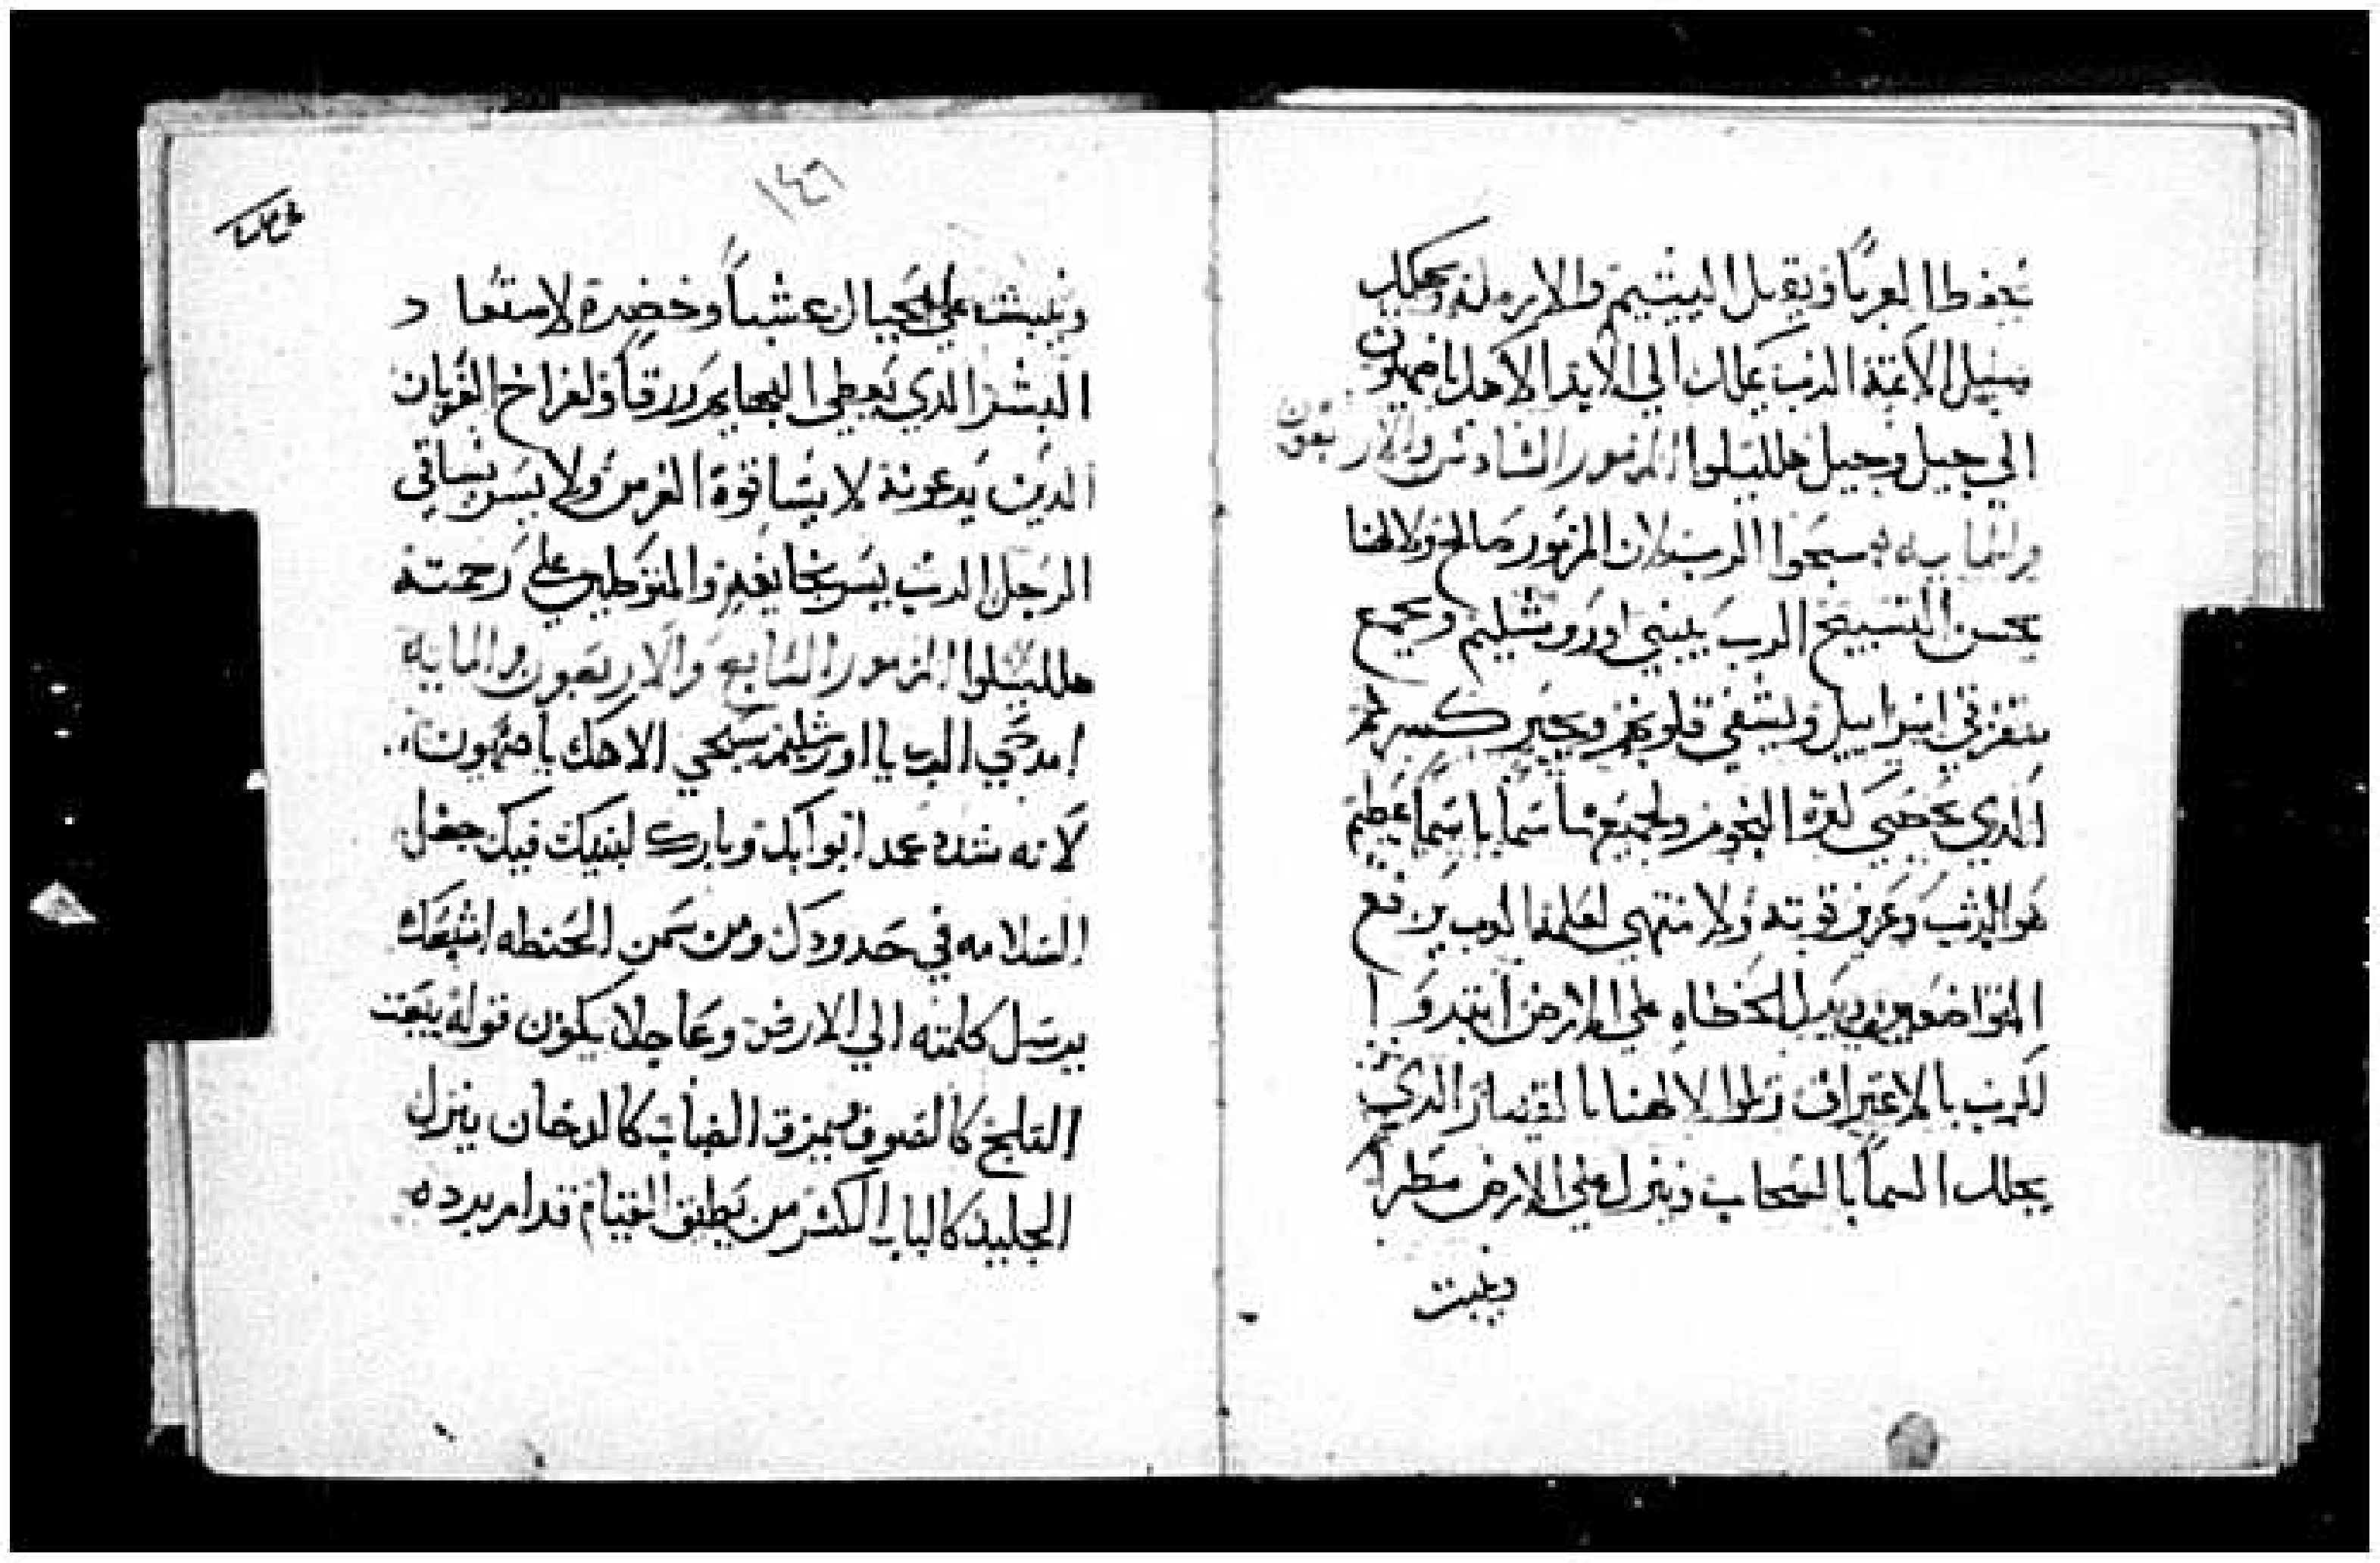 يحفظ الغربا ويقبل اليتيم والارمله ويهلك
سبيل الاثمة الرب يملك الي الابد الاهك ياصهيون
الي جيل وجيل هلليلوا المزمور السادس والاربعون
والمايه سبحوا الرب لان المزمور صالح ولالهنا
يحسن التسبيح الرب يبني اورشليم ويجمع
متفرقي اسراييل ويشفي قلوبهم ويجبر كسرهم
الذي يحصي كثرة النجوم ولجميعها اسما باسما عظيم
هو الرب وعزيز قوته ولا منتهي لعلمه الرب يرفع
المتواضعين ويذل الخطاه علي الارض ابتدوا
للرب بالاعتراف رتلوا لالهنا بالقيتار الذي
يجلل السما بالسحاب وينزل علي الارض مطراً
وينبت
١٤٦
وينبت علي الجبال عشباً وخضرة لاستعباد
البشر الذي يعطي البهايم رزقاً ولفراخ الغربان
الذين يدعونه لا يشا قوة الفرس ولا يسر بساقي
الرجل الرب يسر بخايفيه والمتوكلين علي رحمته
هلليلوا المزمور السابع والاربعون والمايه
امدحي الرب يا اورشليم سبحي الاهك ياصهيون
لانه شدد عمد ابوابك وبارك لبنيك فيك جعل
السلامه في حدودك ومن سمن الحنطه اشبعك
يرسل كلمته الي الارض وعاجلا يكون قوله يبعت
التلج كالصوف يمزق الضباب كالدخان ينزل
الجليد كالباب الكسر من يطيق القيام قدام برده